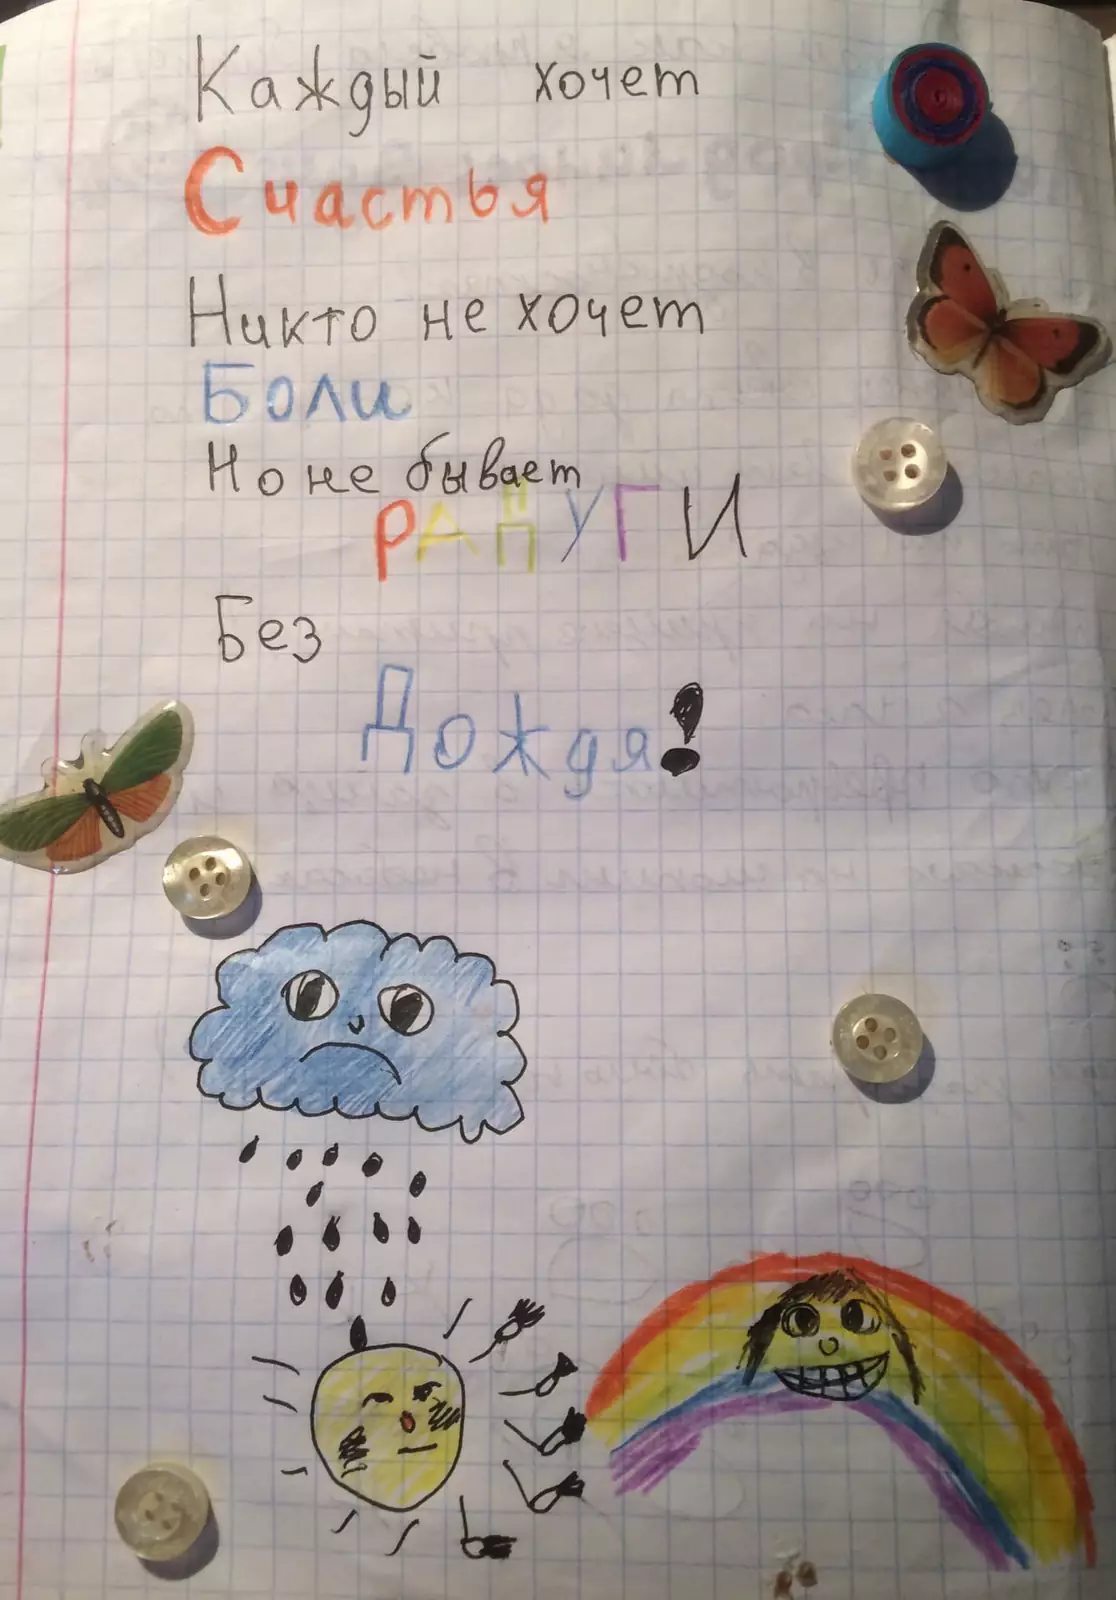 Каждый хочет
Счастья
Никто не хочет
Боли
Но не бывает
РАДУГИ
Без
Дождя!